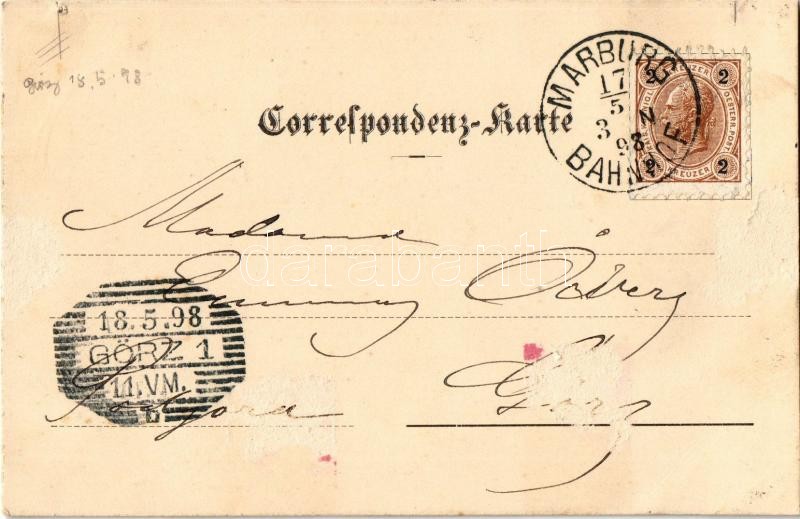 Görz 18.5.98
Correspondenz-Karte
MARBURG
17
5
3 N
98
BAHNHOF
2 2
KREUZER
OESTERR. POST.
2 2
KREUZER
Madame
Emmy
darabanth
18.5.98
GÖRZ 1
11.VM.
Podgora Görz